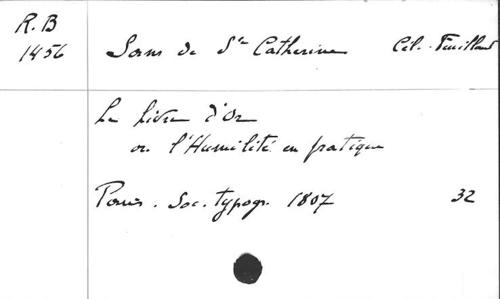 R. B
1456
Soeurs de Ste Catherine Cél. Feuillant
Le Livre d'Or
ou l'Humilité en pratique
Paris. Soc. typogr. 1807 32